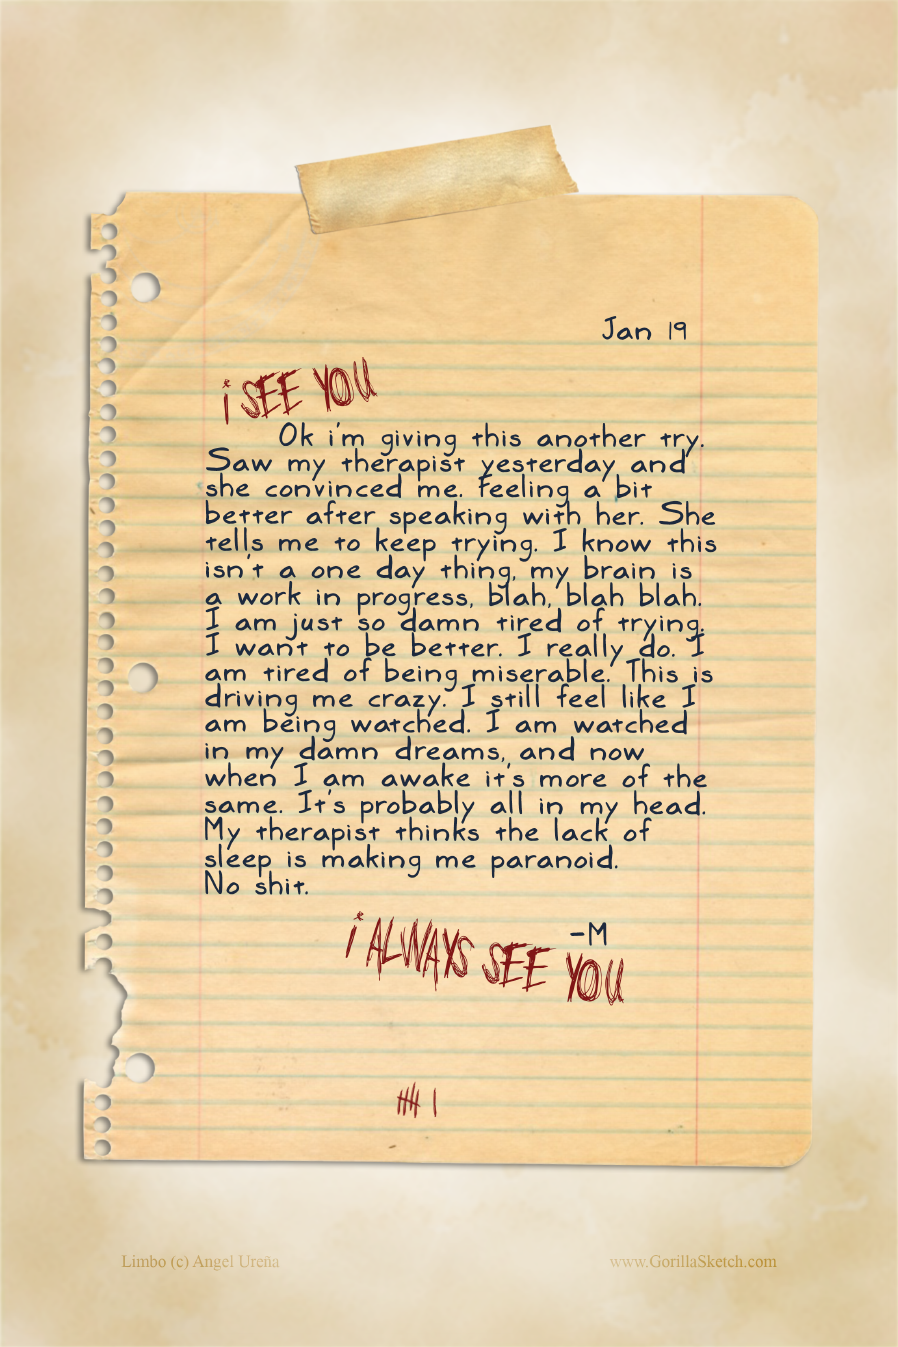 Jan 19
i SEE YOU
Ok i'm giving this another try.
Saw my therapist yesterday and
she convinced me. Feeling a bit
better after speaking with her. She
tells me to keep trying. I know this
isn't a one day thing, my brain is
a work in progress, blah, blah blah.
I am just so damn tired of trying.
I want to be better. I really do. I
am tired of being miserable. This is
driving me crazy. I still feel like I
am being watched. I am watched
in my damn dreams, and now
when I am awake it's more of the
same. It's probably all in my head.
My therapist thinks the lack of
sleep is making me paranoid.
No shit.
-M
i ALWAYS SEE YOU
Limbo (c) Angel Ureña
www.GorillaSketch.com